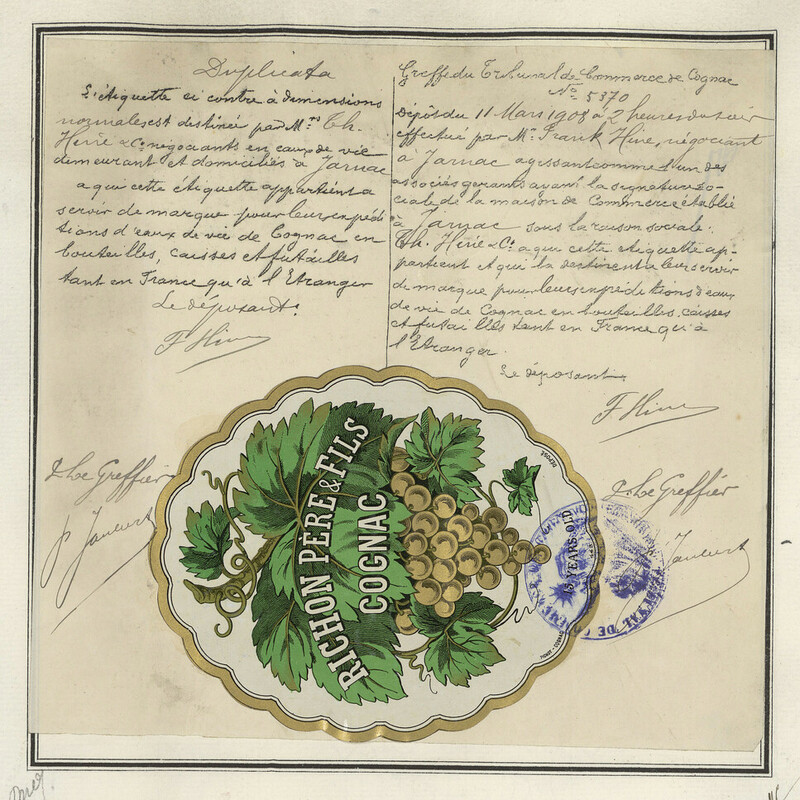 Duplicata
L'étiquette ci contre à dimensions
normales, est destinée par Mrs Th.
Hine & Co négociants en eaux de vie
demeurant et domiciliés à Jarnac
a qui cette étiquette appartient a
servir de marque pour leurs expédi
tions d'eaux de vie de Cognac en
bouteilles, caisses et futailles
tant en France qu'à l'Etranger
Le déposant:
F. Hine
Greffe du Tribunal de Commerce de Cognac
No 5370
Dépôt du 11 Mars 1908 à 2 heures du soir
effectué par Mr. Frank Hine, négociant
à Jarnac agissant comme l'un des
associés gérants ayant la signature so-
ciale de la maison de Commerce établie
à Jarnac sous la raison sociale.
Th. Hine & Co a qui cette étiquette ap-
partient et qui la destinent a leur servir
de marque pour leurs expéditions d'eaux
de vie de Cognac en bouteilles, caisses
et futailles tant en France qu'à
l'Etranger.
Le déposant
F. Hine
Le Greffier
Le Greffier
RICHON PÈRE & FILS
COGNAC
15 YEARS OLD
DÉPOSÉ